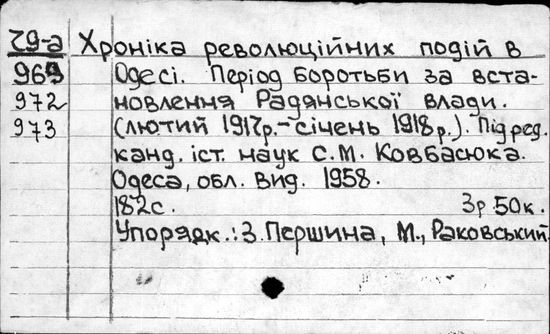 29-а Хроніка революційних подій в
969 Одесі. Період боротьби за вста-
972 новлення Радянської влади.
973 (лютий 1917р.-січень 1918р.). Під ред.
канд. іст. наук С.М. Ковбасюка.
Одеса, обл. вид. 1958.
182с. 3р 50к.
Упорядк.: З. Першина, М., Раковський